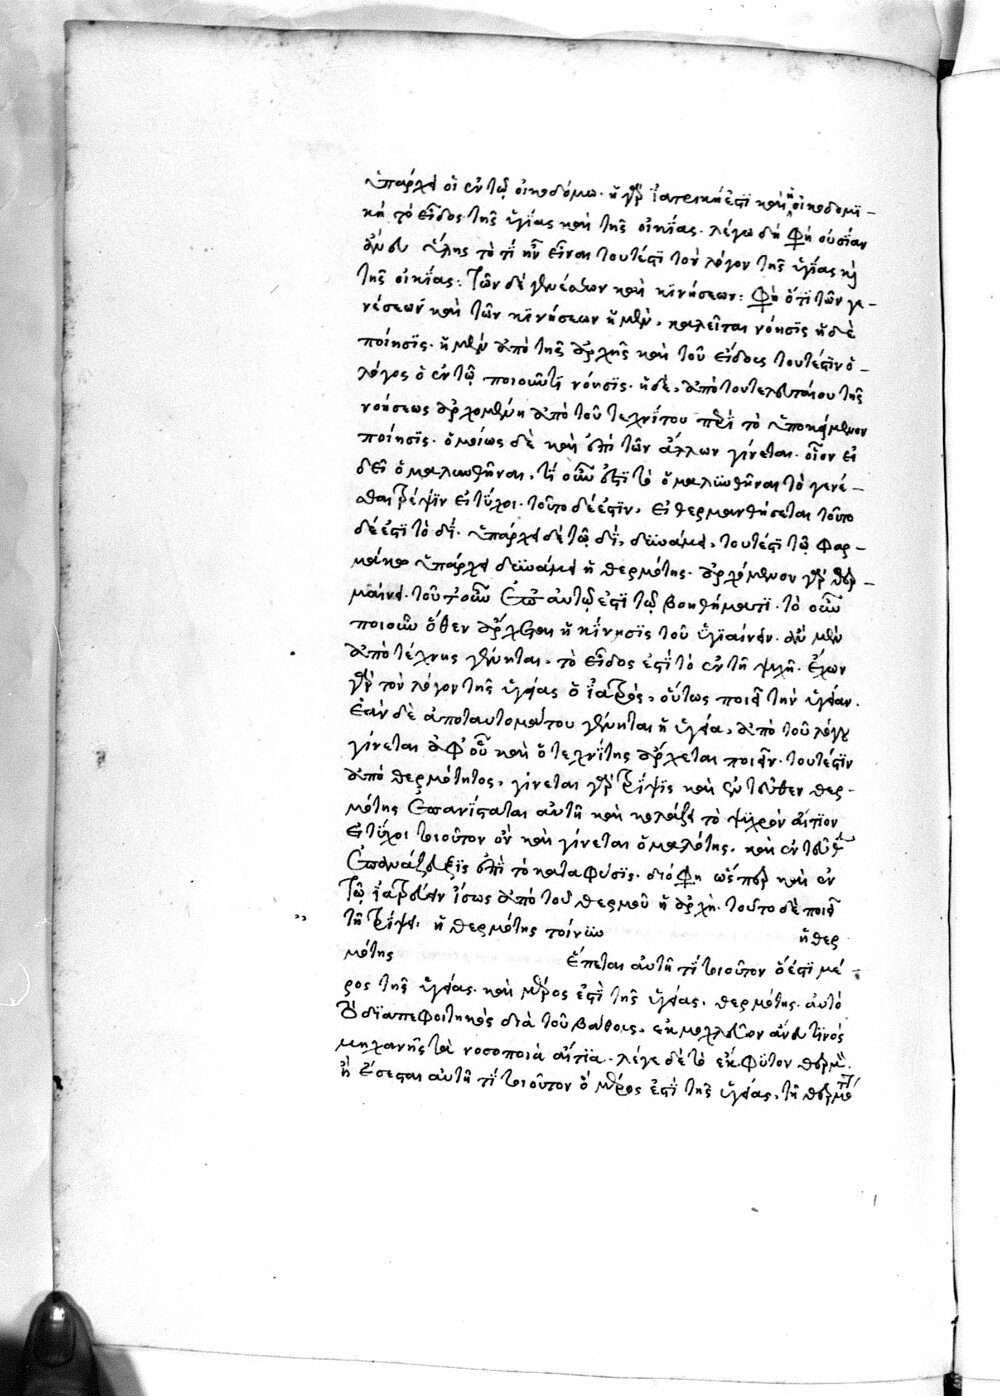 ὑπάρχει οἱ ἐν τῷ οἰκοδόμω· ἡ γὰρ ἰατρικὴ ἐστὶ καὶ ἡ οἰκοδομι-
κὴ τὸ εἶδος τῆς ὑγίας καὶ τῆς οἰκίας· λέγω δὴ φη οὐσίαν
ἄνευ ὕλης τὸ τί ἦν εἶναι τουτέστι τὸν λόγον τῆς ὑγίας καὶ
τῆς οἰκίας: Τῶν δὲ γενέσεων καὶ κινήσεων: Φὴ ὅτι τῶν γε-
νέσεων καὶ τῶν κινήσεων ἡ μὲν, καλεῖται νόησις ἡ δὲ
ποίησις· ἡ μὲν ἀπὸ τῆς ἀρχῆς καὶ τοῦ εἴδους τουτέστιν ὁ
λόγος ὁ ἐν τῷ ποιοῦντι νόησις· ἡ δὲ, ἀπὸ τοῦ τελευταίου τῆς
νοήσεως ἀρχομένη ἀπὸ τοῦ τεχνίτου περὶ τὸ ὑποκείμενον
ποίησις· ὁμοίως δὲ καὶ ἐπὶ τῶν ἄλλων γίνεται· οἷον εἰ
δεῖ ὁμαλυνθῆναι, τί οὖν ἐστὶ τὸ ὁμαλυνθῆναι τὸ γενέ-
σθαι τρέψιν εἰ τύχοι· τοῦτο δέ ἐστιν, εἰ θερμανθήσεται τοῦτο
δέ ἐστὶ τὸ δί· ὑπάρχει δὲ τῷ δί, δυνάμει, τουτέστι τῷ φαρ-
μάκω ὑπάρχει δυνάμει ἡ θερμότης· ἀρχόμενον γὰρ θερ-
μαίνει· τοῦτο οὖν ἐπ' αὐτῷ ἐστὶ τῷ βοηθήματι· τὸ οὖν
ποιοῦν ὅθεν ἄρχεται ἡ κίνησις τοῦ ὑγιαίνειν· ἂν μὲν
ἀπὸ τέχνης γένηται, τὸ εἶδος ἐστὶ τὸ ἐν τῇ ψυχῇ· ἔχων
γὰρ τὸν λόγον τῆς ὑγείας ὁ ἰατρὸς, οὕτως ποιεῖ τὴν ὑγείαν.
ἐὰν δὲ ἀπὸ ταυτομάτου γένηται ἡ ὑγεία, ἀπὸ τοῦ λόγου
γίνεται ἀφ' οὗ καὶ ὁ τεχνίτης ἄρχεται ποιεῖν· τουτέστιν
ἀπὸ θερμότητος, γίνεται γὰρ τρίψις καὶ ἐντεῦθεν θερ-
μότης ἐπανίσταται αὐτῇ καὶ κολάζει τὸ ψυχρὸν αἴτιον
εἰ τύχοι τοιοῦτον ὂν καὶ γίνεται ὁμαλότης, καὶ ἐντεῦθεν
ἐπανάζευξις ἐπὶ τὸ κατὰ φύσις· διό φη ὥσπερ καὶ ἐν
τῷ ἰατρεύειν ἴσως ἀπὸ τοῦ θερμοῦ ἡ ἀρχή· τοῦτο δὲ ποιεῖ
τῇ τρίψει· ἡ θερμότης τοίνυν ἡ θερ
μότης ἕπεται αὐτῇ τί τοιοῦτον ὅ ἐστι μέ-
ρος τῆς ὑγείας· καὶ μέρος ἐστὶ τῆς ὑγείας, θερμότης· αὐτὸ
διαπεφοιτηκὸς διὰ τοῦ βάθους, ἐκμοχλεῦον ἄνευ τινός
μηχανῆς τὰ νοσοποιὰ αἴτια· λέγει δὲ τὸ ἔκφυτον θερμόν.
ἢ ἕσεται αὐτῇ τί τοιοῦτον ὃ μέρος ἐστὶ τῆς ὑγείας, τῇ θερμότητι